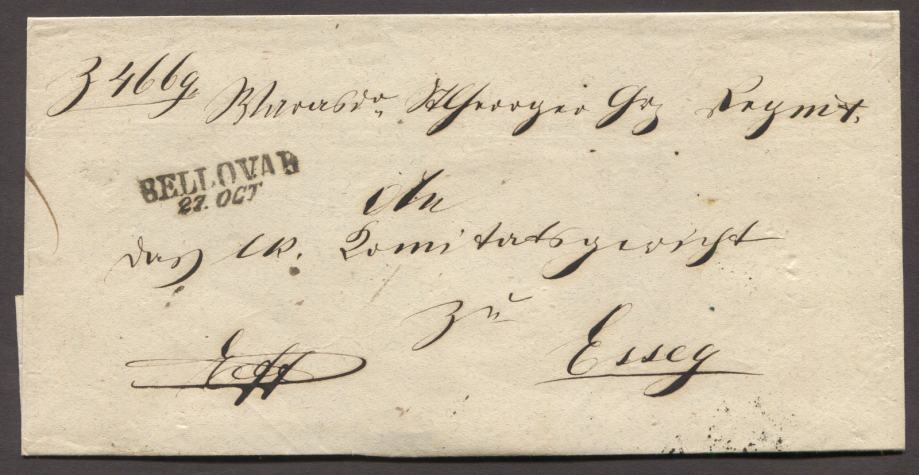 Z 4669
Warasdr St Georger Grz Regmt.
BELLOVAR
27. OCT
An
das kk. Komitatsgericht
zu
Esseg